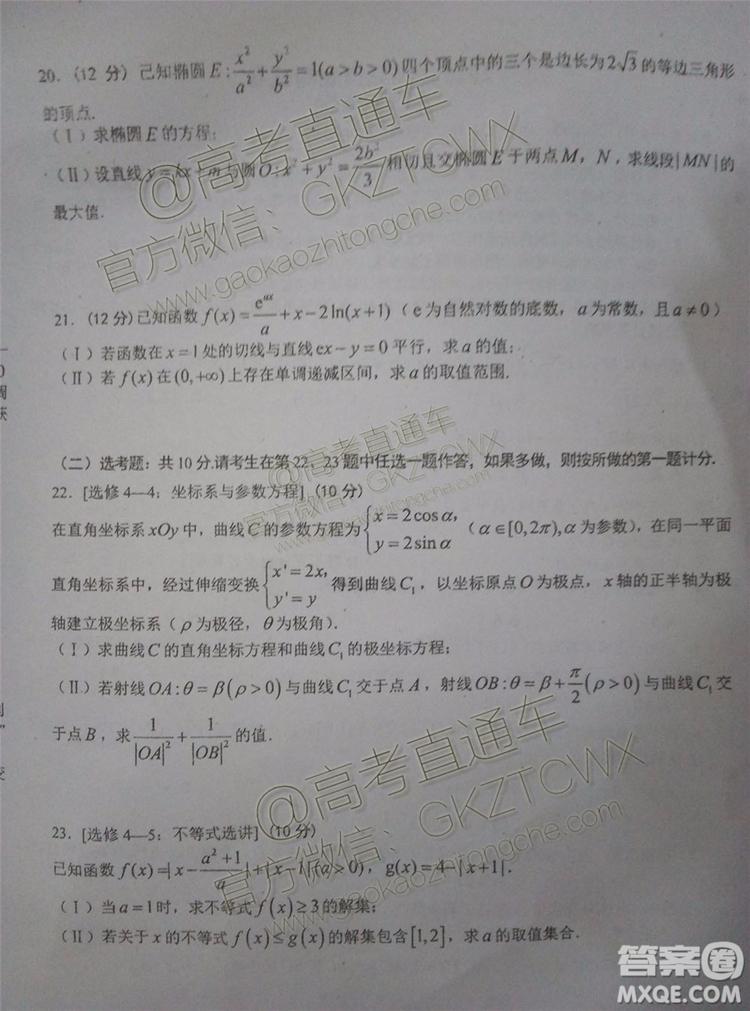 20.（12 分）已知椭圆 E : x²/a² + y²/b² = 1(a > b > 0) 四个顶点中的三个是边长为 2√3 的等边三角形
的顶点.
（Ⅰ）求椭圆 E 的方程；
（Ⅱ）设直线 y = kx + m 与圆 O : x² + y² = 2b²/3 相切且交椭圆 E 于两点 M，N，求线段|MN|的
最大值.
21.（12 分）已知函数 f(x) = e^{ax}/a + x − 2ln(x+1)（ e 为自然对数的底数，a 为常数，且 a ≠ 0）
（Ⅰ）若函数在 x = 1 处的切线与直线 ex − y = 0 平行，求 a 的值；
（Ⅱ）若 f(x) 在 (0,+∞) 上存在单调递减区间，求 a 的取值范围.
（二）选考题：共 10 分.请考生在第 22、23 题中任选一题作答，如果多做，则按所做的第一题计分.
22. [选修 4—4：坐标系与参数方程]（10 分）
在直角坐标系 xOy 中，曲线 C 的参数方程为 { x = 2cosα, y = 2sinα （ α ∈ [0,2π), α 为参数），在同一平面
直角坐标系中，经过伸缩变换 { x' = 2x, y' = y 得到曲线 C₁，以坐标原点 O 为极点，x 轴的正半轴为极
轴建立极坐标系（ ρ 为极径，θ 为极角）.
（Ⅰ）求曲线 C 的直角坐标方程和曲线 C₁ 的极坐标方程；
（Ⅱ）若射线 OA : θ = β(ρ > 0) 与曲线 C₁ 交于点 A，射线 OB : θ = β + π/2 (ρ > 0) 与曲线 C₁ 交
于点 B，求 1/|OA|² + 1/|OB|² 的值.
23. [选修 4—5：不等式选讲]（10 分）
已知函数 f(x) =| x − (a²+1)/a | + | x − 1 | (a > 0)，g(x) = 4 − | x + 1 |.
（Ⅰ）当 a = 1 时，求不等式 f(x) ≥ 3 的解集；
（Ⅱ）若关于 x 的不等式 f(x) ≤ g(x) 的解集包含 [1,2]，求 a 的取值集合.
@高考直通车
官方微信：GKZTCWX
www.gaokaozhitongche.com
@高考直通车
官方微信：GKZTCWX
www.gaokaozhitongche.com
@高考直通车
官方微信：GKZTCWX
www.gaokaozhitongche.com
答案圈
MXQE.COM